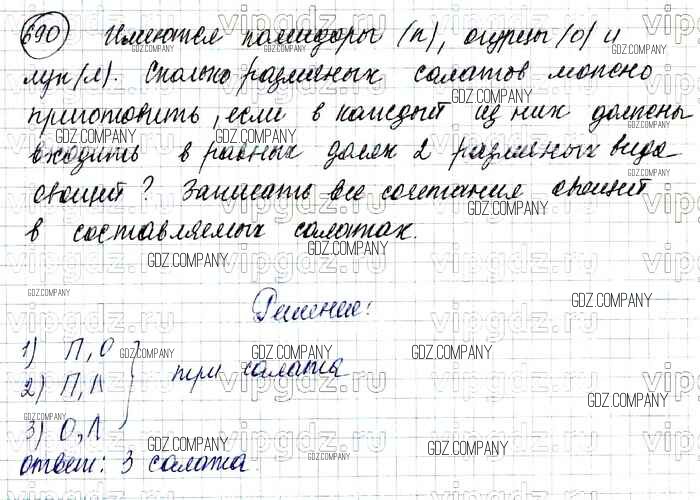 690 Имеются помидоры (п), огурцы (о) и
лук (л). Сколько различных салатов можно
приготовить, если в каждый из них должны
входить в равных долях 2 различных вида
овощей? Записать все сочетания овощей
в составляемых салатах.
Решение:
1) П, О
2) П, Л } три салата
3) О, Л
ответ: 3 салата.
vipgdz.ru
GDZ.COMPANY